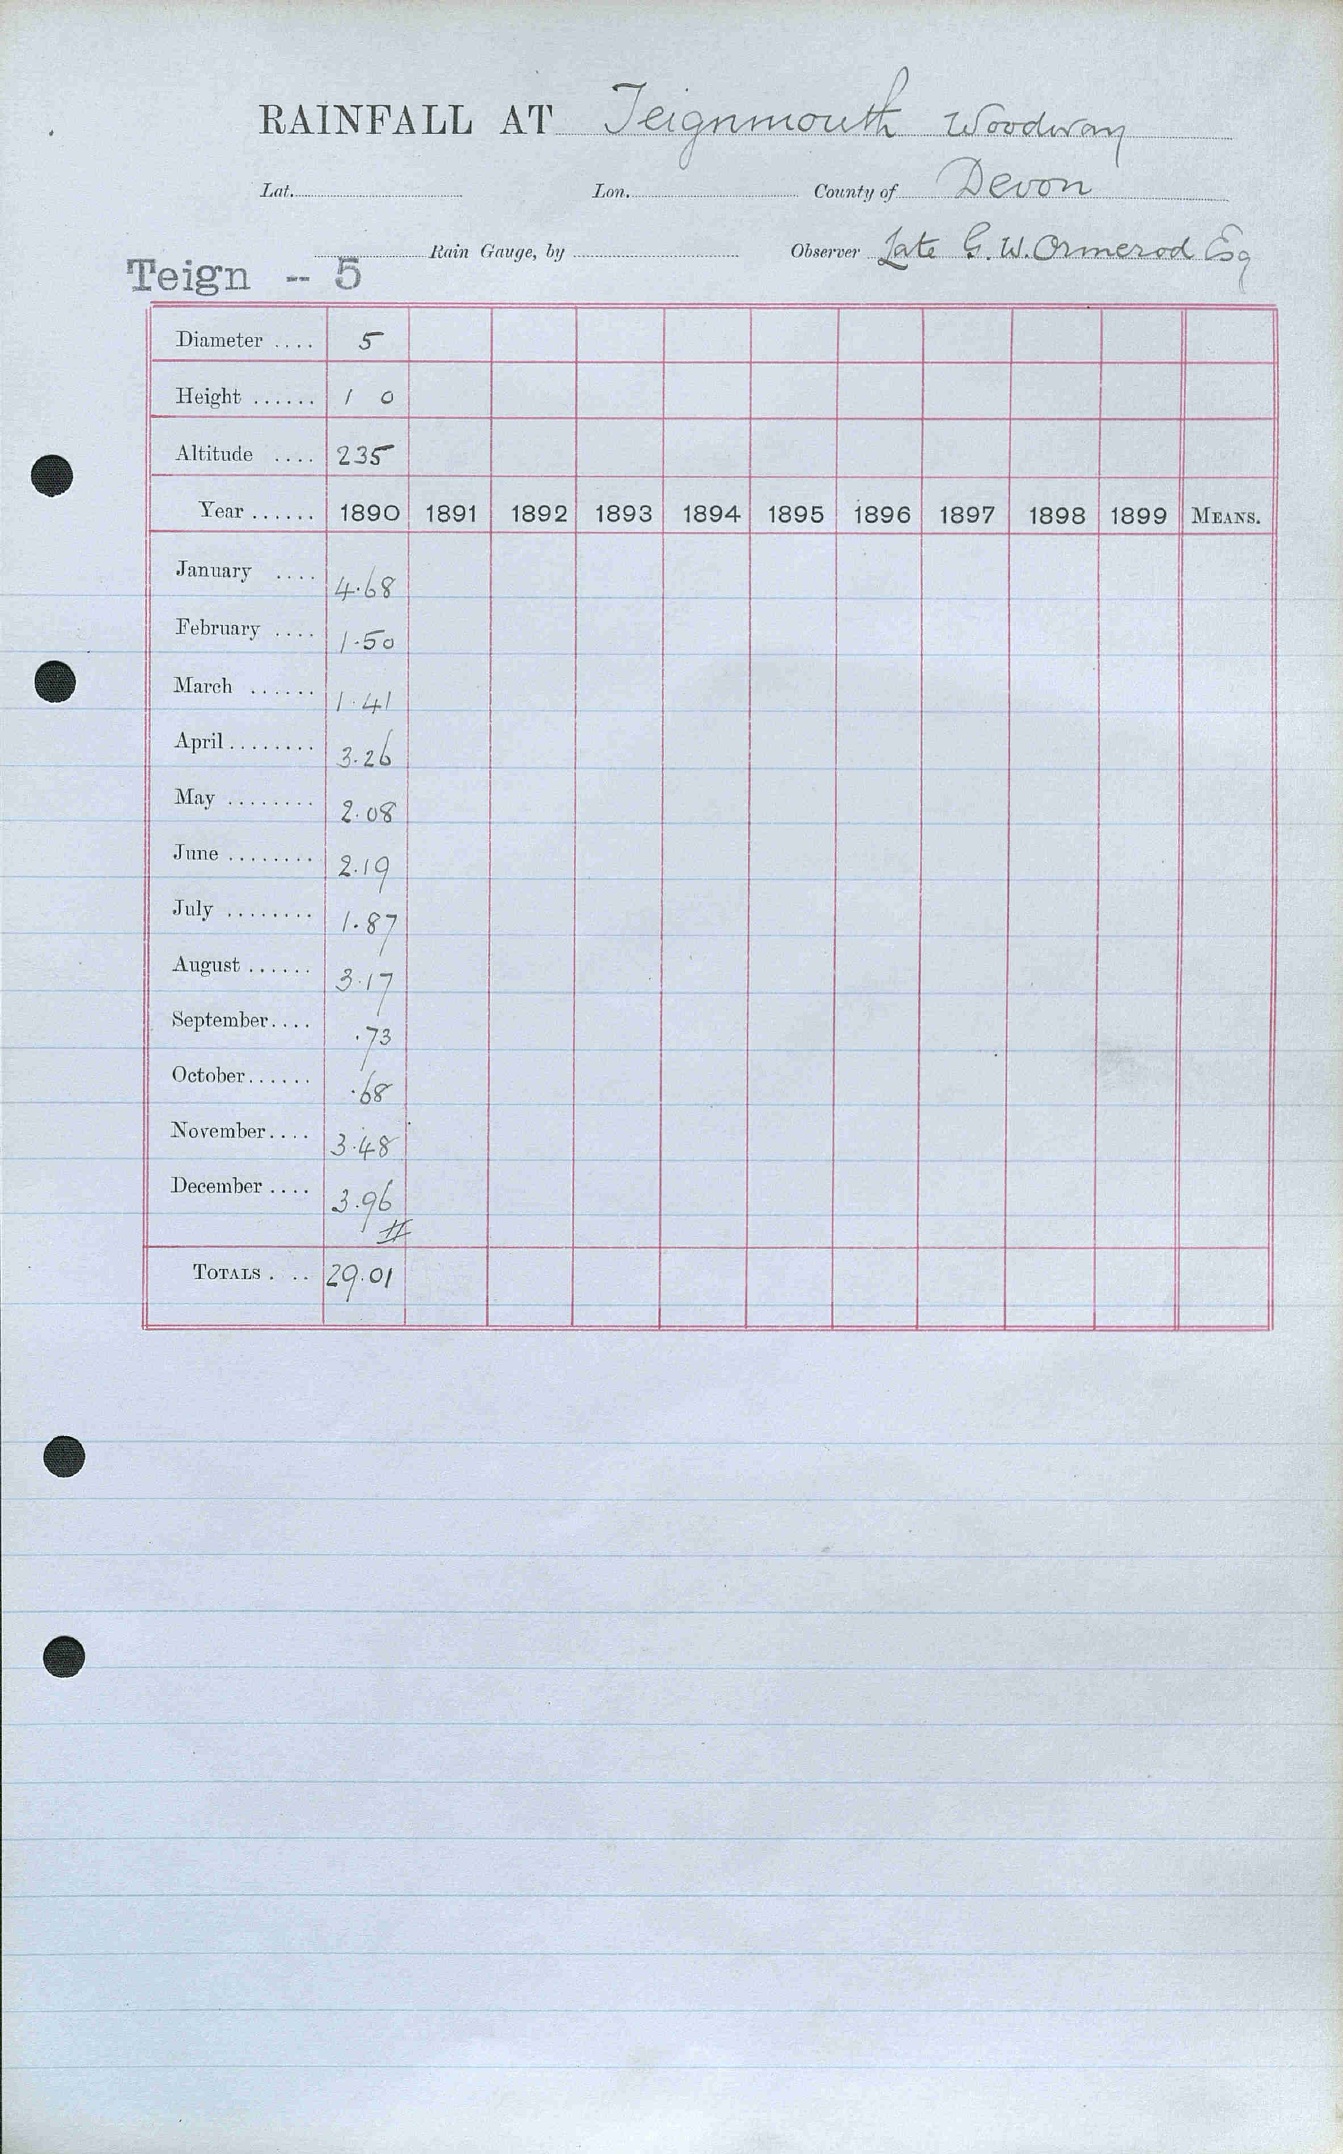 RAINFALL AT Teignmouth Woodway
Lat. Lon. County of Devon
Rain Gauge, by Observer Late G. W. Ormerod Esq
Teign -- 5
Diameter .... 5
Height ...... 1 0
Altitude .... 235
Year ...... 1890 1891 1892 1893 1894 1895 1896 1897 1898 1899 MEANS.
January .... 4.68
February .... 1.50
March ...... 1.41
April ........ 3.26
May ........ 2.08
June ........ 2.19
July ........ 1.87
August ...... 3.17
September.... .73
October...... .68
November.... 3.48
December .... 3.96
#
TOTALS . .. 29.01